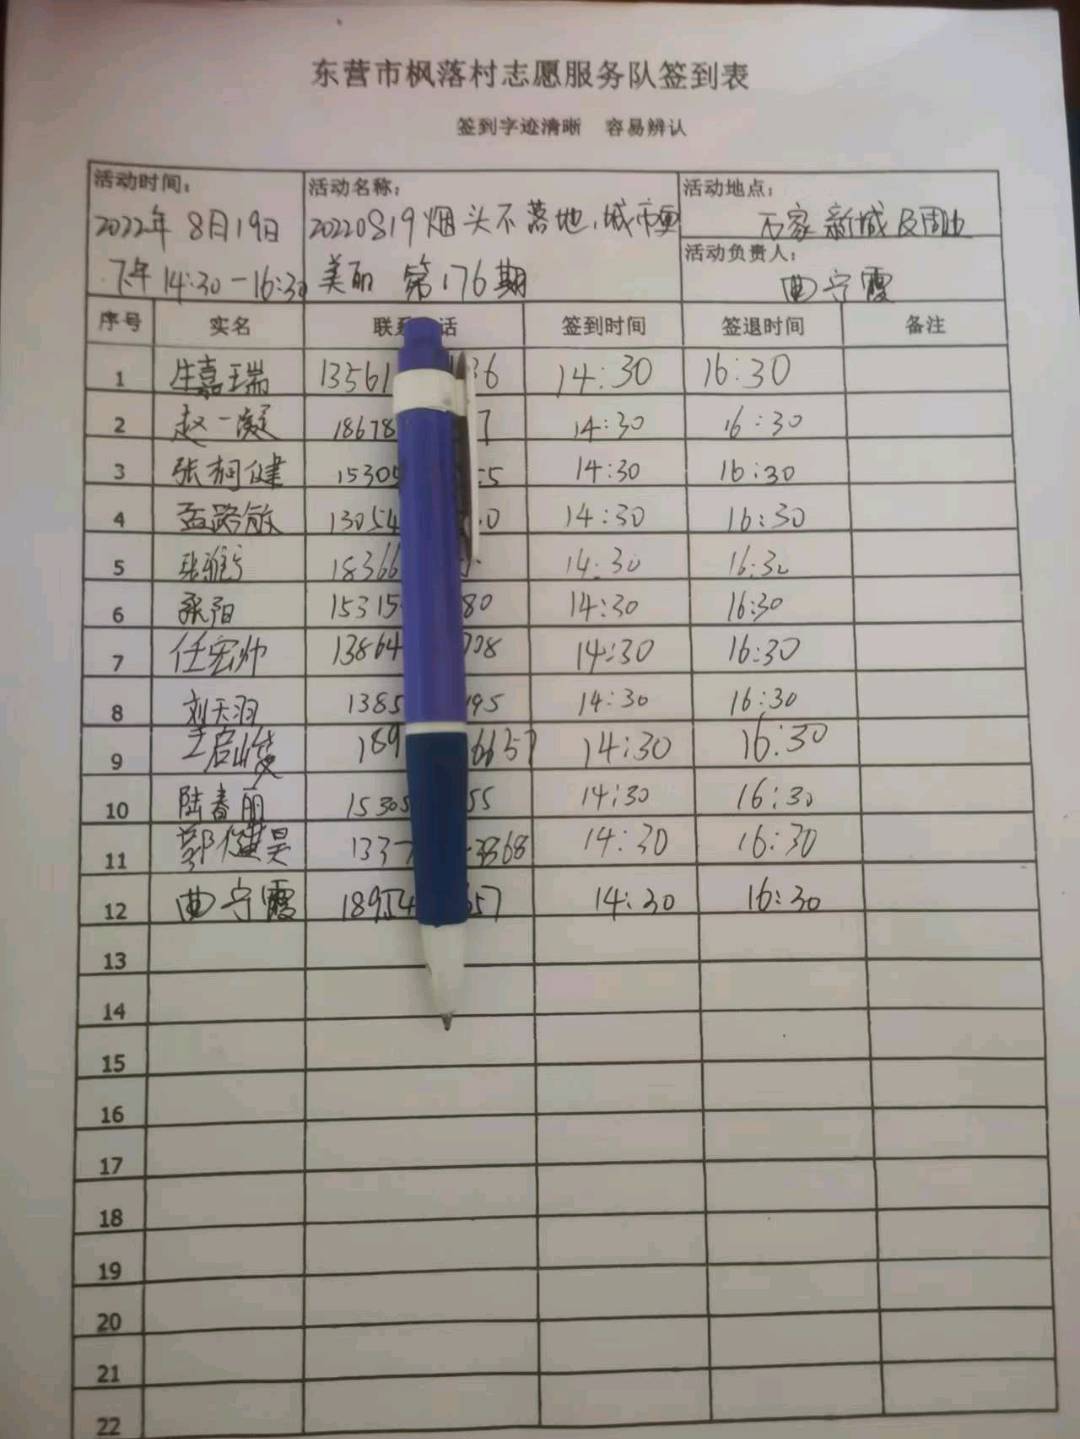 东营市枫落村志愿服务队签到表
签到字迹清晰 容易辨认
活动时间: 2022年8月19日 下午14:30-16:30
活动名称: 20220819烟头不落地,城市更美丽 第176期
活动地点: 万家新城及周边
活动负责人: 曲宁霞
序号 实名 联系 话 签到时间 签退时间 备注
1 生嘉瑞 13561 36 14:30 16:30
2 赵一凝 18678 7 14:30 16:30
3 张柯健 15305 55 14:30 16:30
4 孟路敏 13054 0 14:30 16:30
5 张 18366 14:30 16:30
6 张阳 15315 80 14:30 16:30
7 任宏帅 13864 14:30 16:30
8 刘天羽 1385 95 14:30 16:30
9 王启峻 189 6657 14:30 16:30
10 陆春丽 15305 55 14:30 16:30
11 郭健昊 1337 3368 14:30 16:30
12 曲宁霞 18954 657 14:30 16:30
13
14
15
16
17
18
19
20
21
22